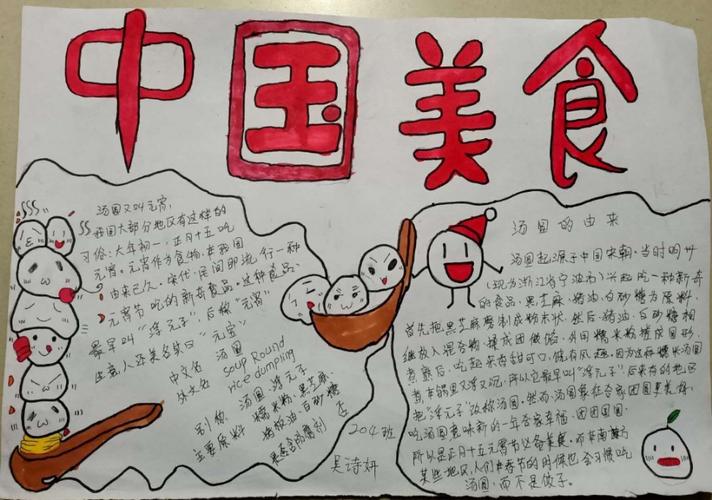 中国美食
汤圆又叫元宵,
我国大部分地区有这样的
习俗:大年初一,正月十五吃
元宵。元宵作为食物,在我国
由来已久。宋代,民间即流行一种
元宵节吃的新奇食品。这种食品,
最早叫“浮元子”后称“元宵”
生意人还美名其曰“元宝”
中文名 汤圆
外文名 soup Round
rice dumping
别 称: 汤团 浮元子
主要原料 糯米粉,黑芝麻
猪板油,白砂糖
是否含防腐剂 否
204班
吴诗妍
汤圆的由来
汤圆起源于中国宋朝。当时明州
(现为浙江省宁波市)兴起吃一种新奇
的食品,黑芝麻、猪油、白砂糖为原料,
首先把黑芝麻磨制成粉末状,然后,猪油,白砂糖相
继放入混合物,揉成团做馅,外用糯米粉搓成圆形,
煮熟后,吃起来香甜可口,饶有风趣。因为这种糯米汤圆
煮在锅里又浮又沉,所以它最早叫“浮元子”后来有的地区
把“浮元子”改称汤圆。然而,汤圆象征合家团圆更美好,
吃汤圆意味新的一年合家幸福、团团圆圆,
所以是正月十五元宵节必备美食。而在南方
某些地区,人们在春节的时候也会习惯吃
汤圆,而不是饺子。